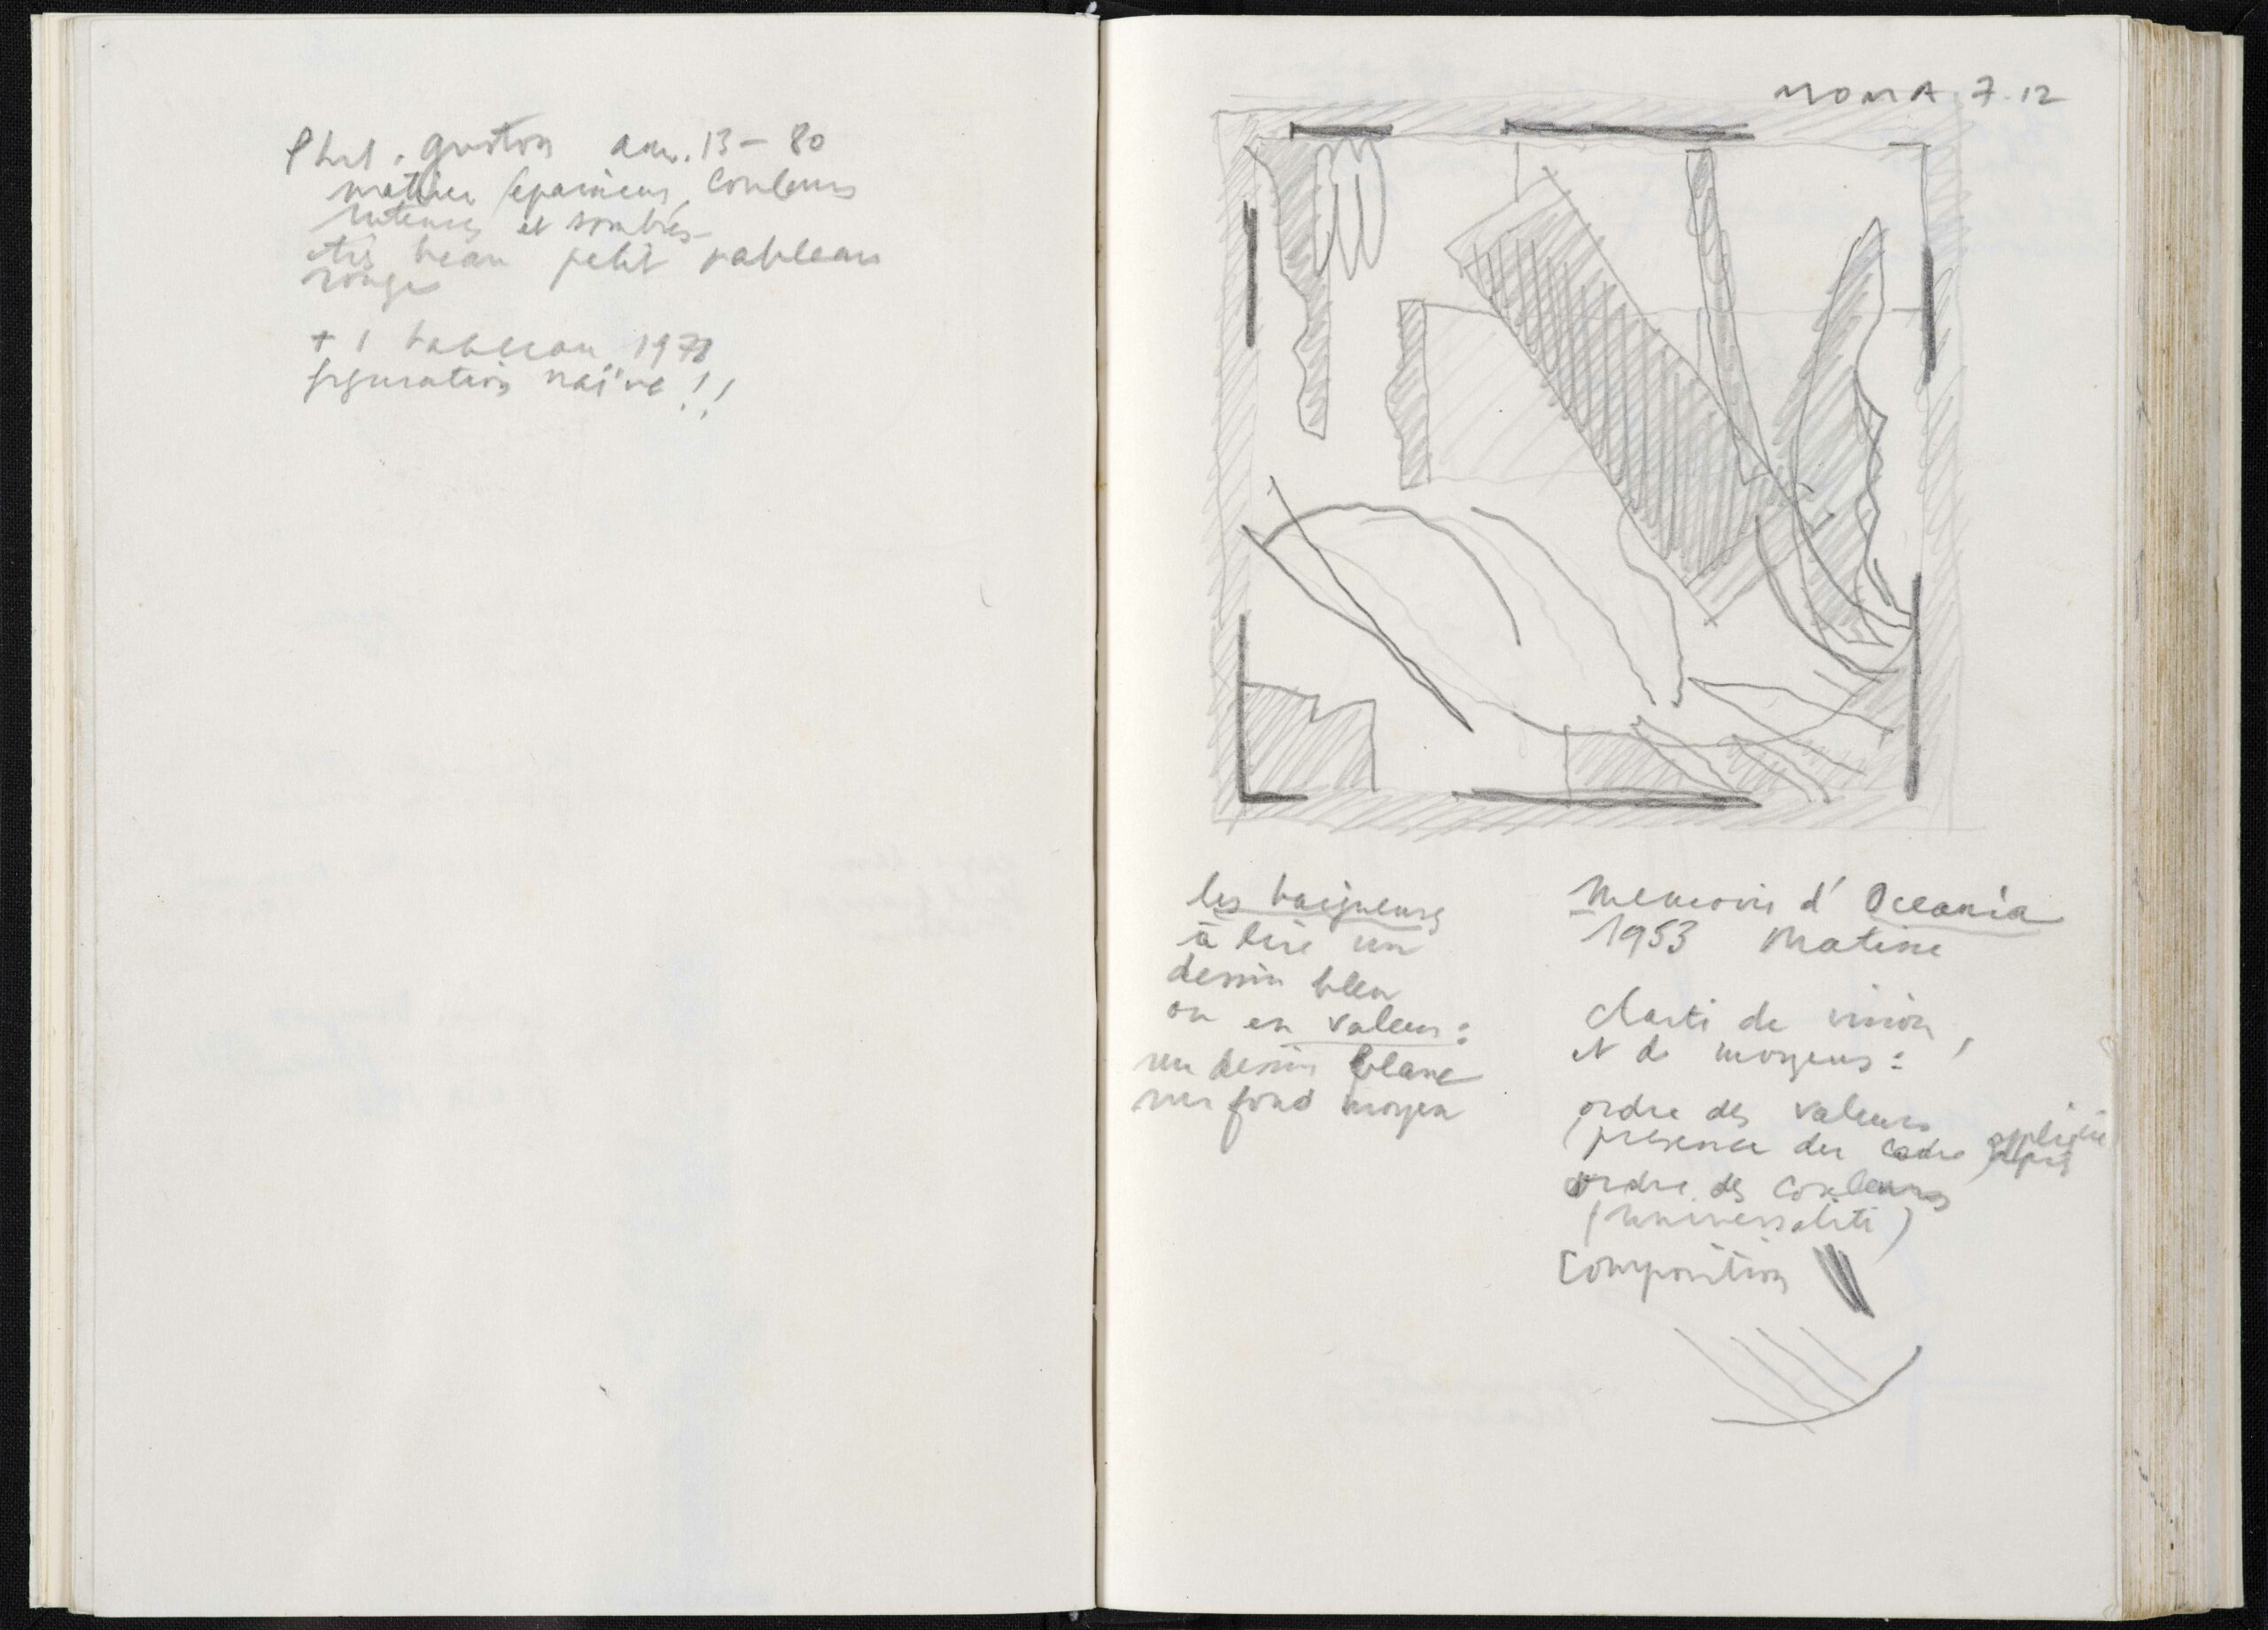 Phil. Guston am. 13-80
matière épaisseur, couleurs
intenses et sombres
très beau petit tableau
rouge
+ 1 tableau 1978
figuration naïve !!
MOMA. 7.12
les baigneurs
à lire un
dessin bleu
ou en valeur :
un dessin blanc
sur fond moyen
Memoris d' Oceania
1953 Matisse
clarté de vision,
et de moyens :
ordre des valeurs
(présence du cadre appliqué
après
ordre des couleurs
(universalité)
Composition